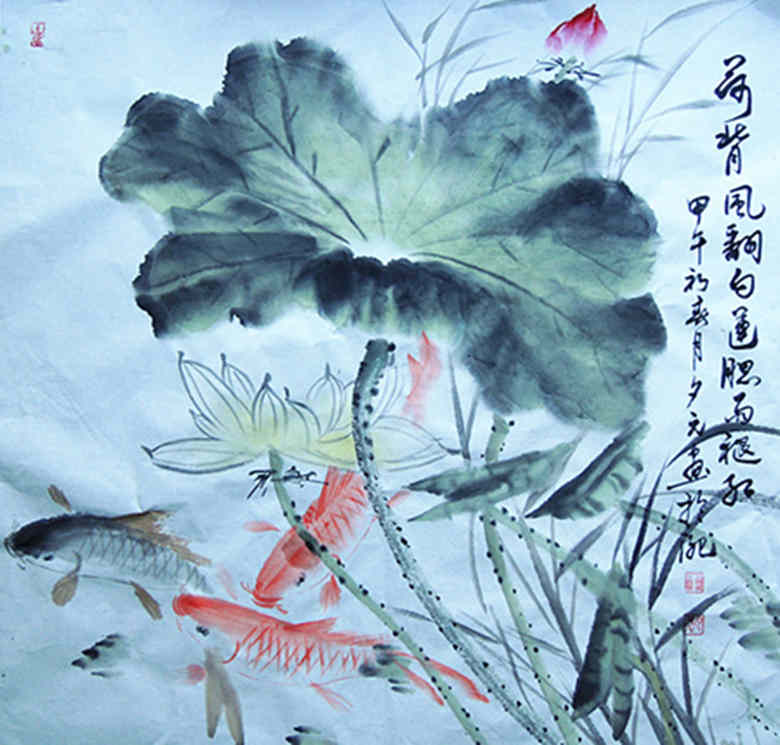 荷背風翻白蓮腮雨褪红
甲午初春月夕元畫於